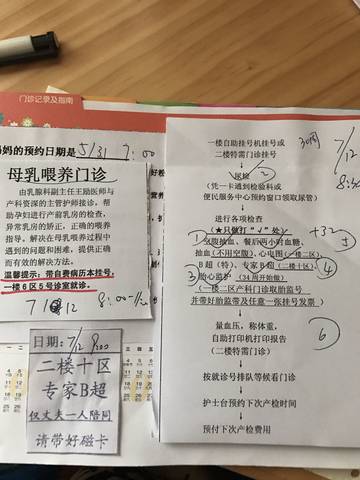 门诊记录及指南
妈妈的预约日期是 5/31 7:00
母乳喂养门诊
由乳腺科副主任王励医师与
产科资深的主管护师接诊，帮
助孕妇进行产前乳房的检查，
异常乳房的矫正，正确的喂养
指导。解决在母乳喂养过程中
遇到的问题和困难，提供正确
而有效的解决方法。
温馨提示：带自费病历本挂号，
一楼6区5号诊室就诊。
日期：7/12 8:00
二楼十区
专家B超
仅丈夫一人陪同
请带好磁卡
一楼自助挂号机挂号或
二楼特需门诊挂号
30周
7/12
尿检 2
（凭一卡通到检验科或
便民服务中心预约窗口领取尿管）
进行各项检查
（★只做打“√”处）
+32
1 空腹抽血、餐后两小时血糖、
抽血（不用空腹）、心电图（一楼二区）
B超（特）、专家B超（二楼十区）、4
3 胎心监护（34周开始做）
（一楼二区产科门诊取胎监号
并带好胎监带及任意一张挂号发票）
量血压，称体重，
自助打印机打印报告
（二楼特需门诊）
6
按就诊号排队等候看门诊
护士台预约下次产检时间
预付下次产检费用